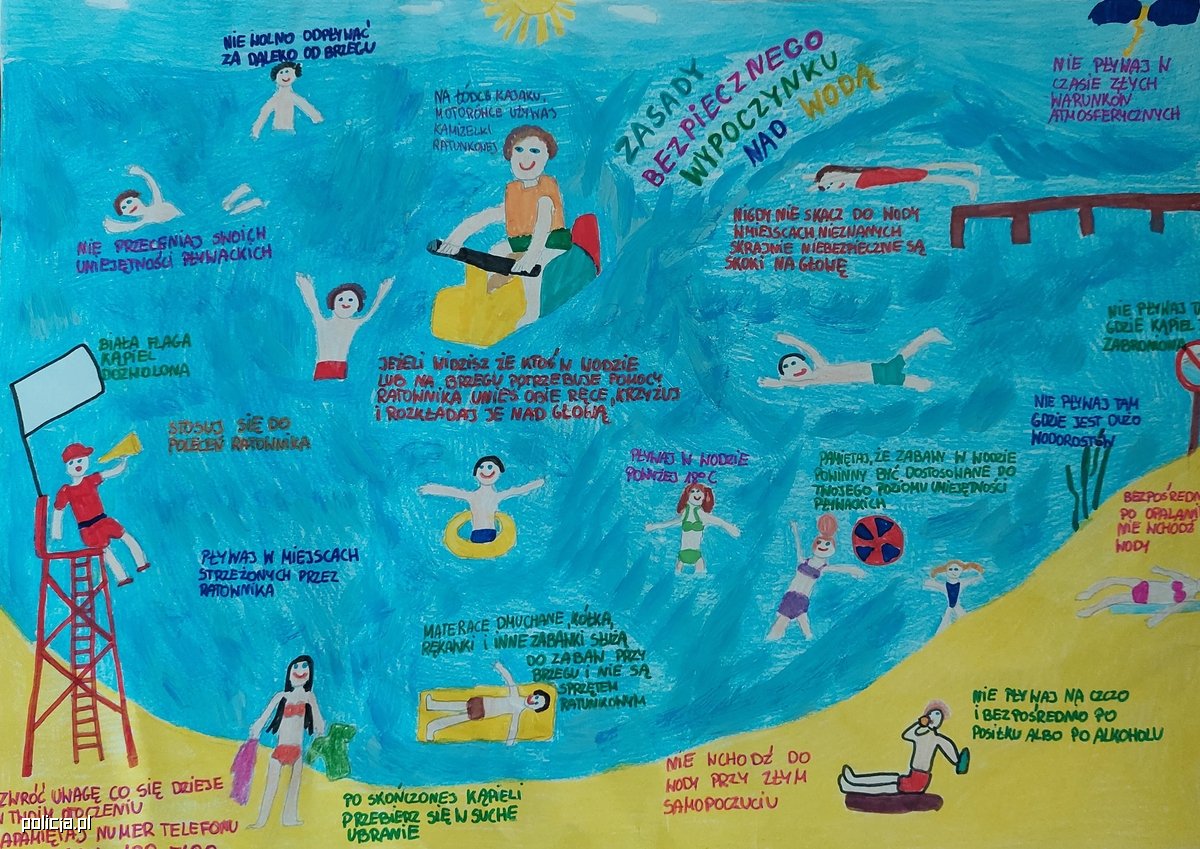 NIE WOLNO ODPŁYWAĆ
ZA DALEKO OD BRZEGU
NA ŁÓDCE KAJAKU,
MOTORÓWCE UŻYWAJ
KAMIZELKI
RATUNKOWEJ
ZASADY
BEZPIECZNEGO
WYPOCZYNKU
NAD WODĄ
NIE PŁYWAJ W
CZASIE ZŁYCH
WARUNKÓW
ATMOSFERYCZNYCH
NIE PRZECENIAJ SWOICH
UMIEJĘTNOŚCI PŁYWACKICH
NIGDY NIE SKACZ DO WODY
W MIEJSCACH NIEZNANYCH
SKRAJNIE NIEBEZPIECZNE SĄ
SKOKI NA GŁOWĘ
BIAŁA FLAGA
KĄPIEL
DOZWOLONA
JEŻELI WIDZISZ ŻE KTOŚ W WODZIE
LUB NA BRZEGU POTRZEBUJE POMOCY
RATOWNIKA UNIEŚ OBIE RĘCE, KRZYŻUJ
I ROZKŁADAJ JE NAD GŁOWĄ
NIE PŁYWAJ
GDZIE KĄPIEL
ZABRONIONA
STOSUJ SIĘ DO
POLECEŃ RATOWNIKA
NIE PŁYWAJ TAM
GDZIE JEST DUŻO
WODOROSTÓW
PŁYWAJ W WODZIE
POWYŻEJ 18°C
PAMIĘTAJ, ŻE ZABAWY W WODZIE
POWINNY BYĆ DOSTOSOWANE DO
TWOJEGO POZIOMU UMIEJĘTNOŚCI
PŁYWACKICH
BEZPOŚREDN
PO OPALANI
NIE WCHODŹ
WODY
PŁYWAJ W MIEJSCACH
STRZEŻONYCH PRZEZ
RATOWNIKA
MATERACE DMUCHANE, KÓŁKA,
RĘKAWKI I INNE ZABAWKI SŁUŻĄ
DO ZABAW PRZY
BRZEGU I NIE SĄ
SPRZĘTEM
RATUNKOWYM
NIE PŁYWAJ NA CZCZO
I BEZPOŚREDNIO PO
POSIŁKU ALBO PO ALKOHOLU
NIE WCHODŹ DO
WODY PRZY ZŁYM
SAMOPOCZUCIU
PO SKOŃCZONEJ KĄPIELI
PRZEBIERZ SIĘ W SUCHE
UBRANIE
ZWRÓĆ UWAGĘ CO SIĘ DZIEJE
W TWOIM OTOCZENIU
ZAPAMIĘTAJ NUMER TELEFONU
policja.pl